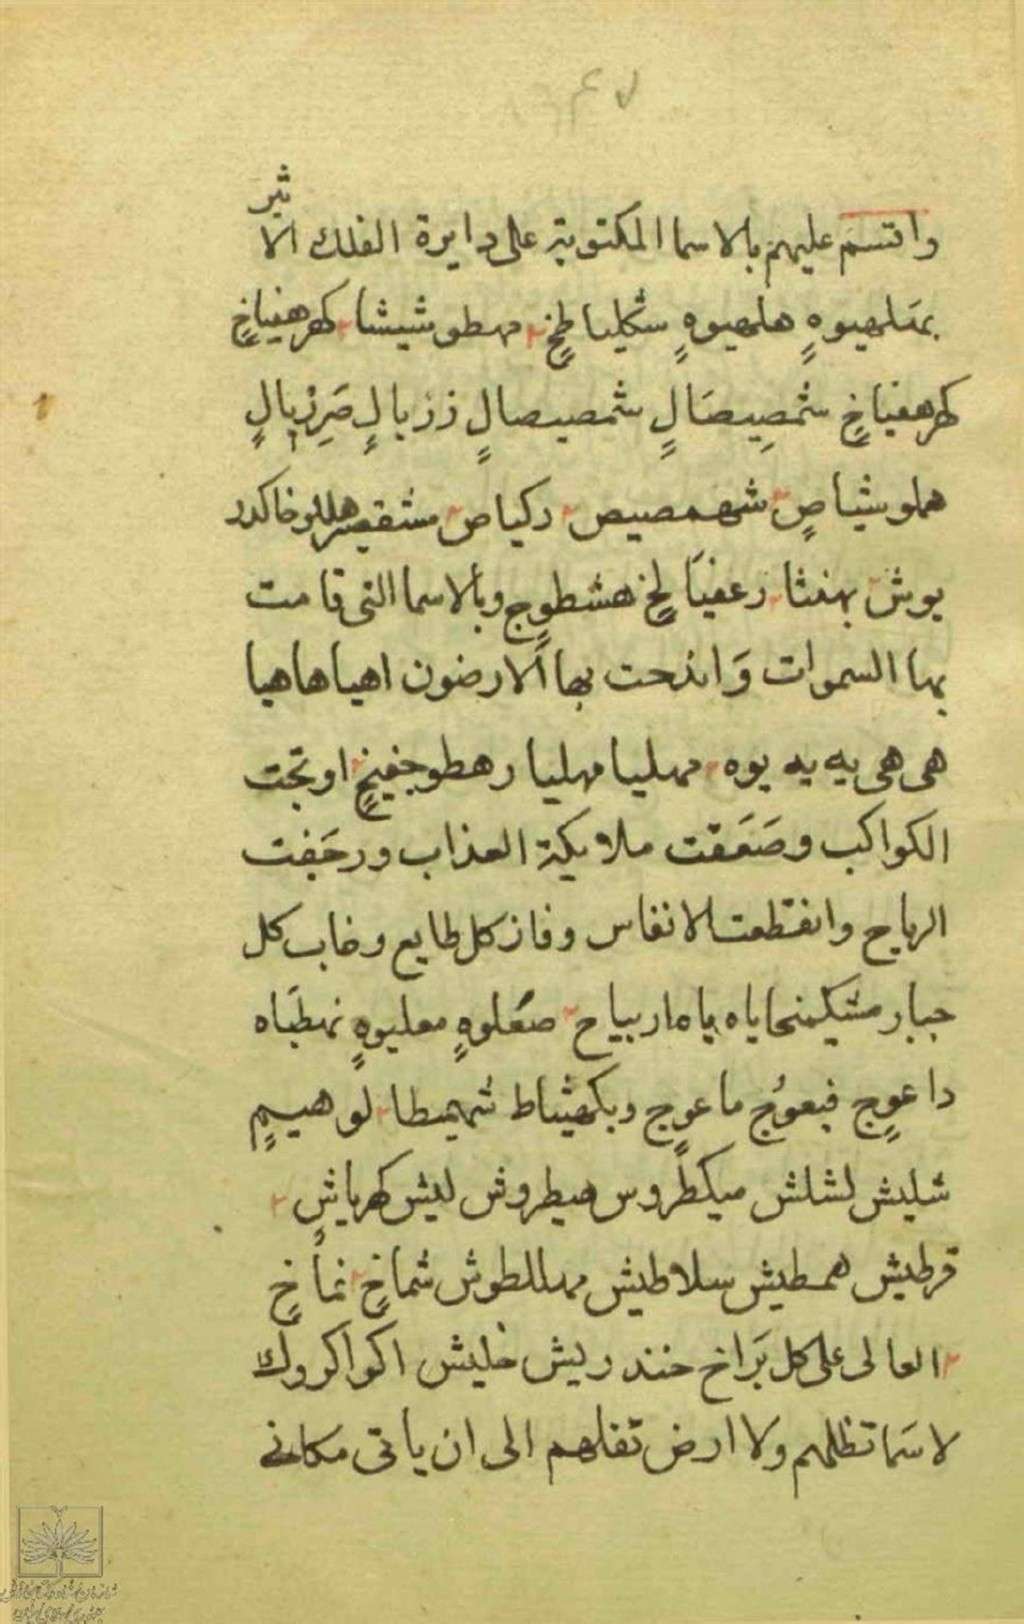 واقسم عليهم بالاسما المكتوبة على دايرة الفلك الاثير
بمتلهيوهٍ هلهيوهٍ شكليا طخٍ مهطو شيشا كهرهفياخٍ
كهرهفياخٍ شمصِيصَالٍ شمصيصالٍ ززيالٍ صَرِزيالٍ
هملوشياصٍ شهمصيص ركياص
يوش بهفثا رعفيَا لخٍ هشطوجٍ وبالاسما التى قامت
بها السموات وَاندحت بها الارضون اهيا هاهيا
هى هى يه يه يوه مهليا مهليا رهطوجفيخٍ اوتجت
الكواكب وصَعَقت ملايكة العذاب ورجَفت
الرياح وانقطعت الانفاس وفاز كل طايع وخاب كل
جبار ياه ياه ارياح صعَلوهٍ معليوهٍ نهطيَاه
داعوجٍ فيعوُج ماعوجٍ وبكهثياط شهميطا لوهيمٍ
شليش لشلش ميكطروس هيطروش ليش كهرياشٍ
قرطيش همطيش سلاطيش مهللطوش شماخٍ نماخٍ
العالى على كل بَراخ خندريش خليش اكوا كروك
لا سَما تظلهم ولا ارض تقلهم الى ان ياتى مكانى